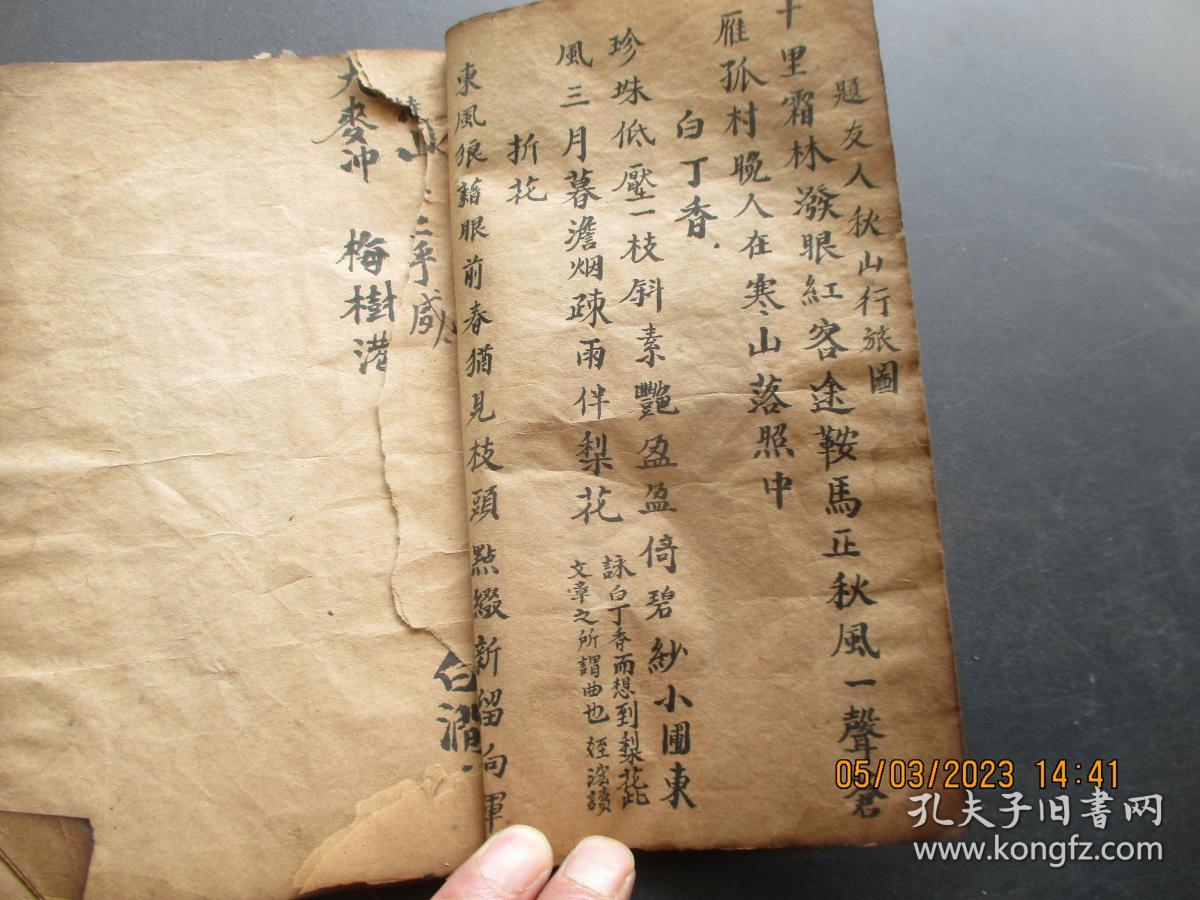 題友人秋山行旅圖
十里霜林潑眼紅客途鞍馬正秋風一聲
雁孤村晚人在寒山落照中
白丁香
珍珠低壓一枝斜素艷盈盈倚碧紗小圃東
風三月暮澹烟疎雨伴梨花
詠白丁香而想到梨花此
文章之所謂曲也 姪 讀
折花
東風狼藉眼前春猶見枝頭點綴新留向軍
二乎咸
白澗
大麥冲 梅樹港
05/03/2023 14:41
孔夫子旧书网
www.kongfz.com